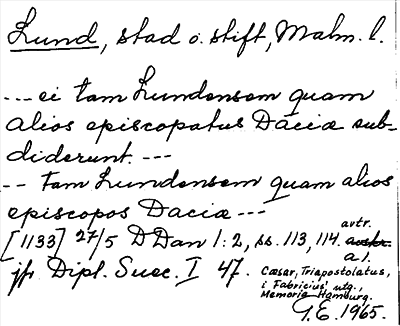 Lund, stad o. stift, Malm. l.
--- ei tam Lundensem quam
alios episcopatus Daciæ sub-
diderunt. ---
-- tam Lundensem quam alios
episcopos Daciæ ---
[1133] 27/5 D Dan 1:2, ss. 113, 114. avtr.
jfr Dipl. Suec. I 47. a 1.
Cæsar, Triapostolatus,
i Fabricius' utg.,
Memoriæ Hamburg.
G.E. 1965.